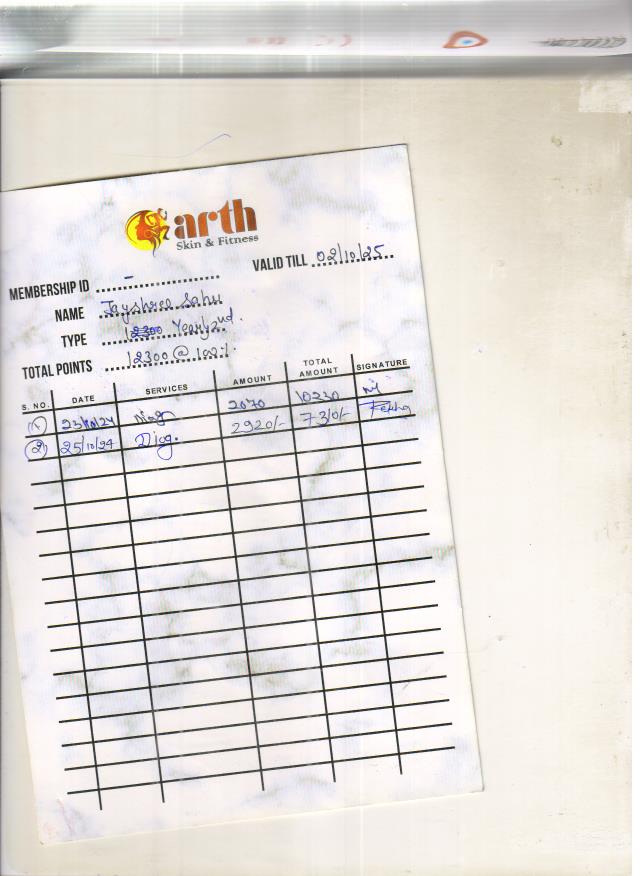 arth
Skin & Fitness
VALID TILL 02/10/25
MEMBERSHIP ID -
NAME Jayshree Sahu
TYPE 12300 Yearly 2nd.
TOTAL POINTS 12300 @
S. NO. DATE SERVICES AMOUNT TOTAL AMOUNT SIGNATURE
(1) 23/10/24 2070 10230
(2) 25/10/24 2920/- 7310/-